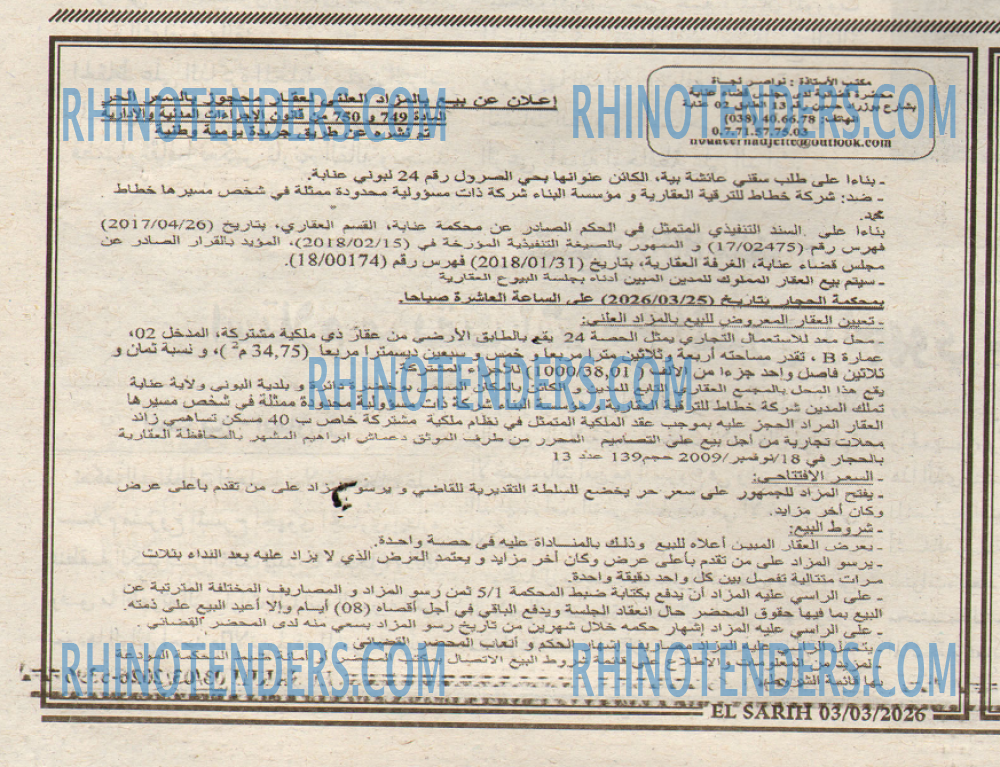 مكتب الأستاذة : نواصر نجاة
محضرة قضائية لدى مجلس قضاء عنابة
بشارع بوزراد حسين رقم 13 الطابق 02 عنابة
الهاتف: 40.66.78 (038)
0.7.71.57.75.03
nouacernadjette@outlook.com
إعلان عن بيع بالمزاد العلني لعقار محجوز بالسعر الحر
المادة 749 و 750 من قانون الإجراءات المدنية والإدارية
تم نشره عن طريق جريدة يومية وطنية
RHINOTENDERS.COM
RHINOTENDERS.COM
ـ بناءا على طلب سقني عائشة بية، الكائن عنوانها بحي الصرول رقم 24 لبوني عنابة.
ـ ضد: شركة خطاط للترقية العقارية و مؤسسة البناء شركة ذات مسؤولية محدودة ممثلة في شخص مسيرها خطاط
محمد.
بناءا على السند التنفيذي المتمثل في الحكم الصادر عن محكمة عنابة، القسم العقاري، بتاريخ (2017/04/26)
فهرس رقم (17/02475) و الممهور بالصيغة التنفيذية المؤرخة في (2018/02/15)، المؤيد بالقرار الصادر عن
مجلس قضاء عنابة، الغرفة العقارية، بتاريخ (2018/01/31) فهرس رقم (18/00174).
ـ سيتم بيع العقار المملوك للمدين المبين أدناه بجلسة البيوع العقارية
بمحكمة الحجار بتاريخ (2026/03/25) على الساعة العاشرة صباحا.
ـ تعيين العقار المعروض للبيع بالمزاد العلني:
ـ محل معد للاستعمال التجاري يمثل الحصة 24 يقع بالطابق الأرضي من عقار ذي ملكية مشتركة، المدخل 02،
عمارة B ، تقدر مساحته أربعة وثلاثين مترا مربعا و خمس و سبعين ديسمترا مربعا (34,75 م²)، و نسبة ثمان و
ثلاثين فاصل واحد جزءا من الألف (1000/38,01) للأجزاء المشتركة.
يقع هذا المحل بالمجمع العقاري التابع للمدين و الكائن بالمكان المسمى بوخضرة دائرة و بلدية البوني ولاية عنابة
تملك المدين شركة خطاط للترقية العقارية و مؤسسة البناء شركة ذات مسؤولية محدودة ممثلة في شخص مسيرها
العقار المراد الحجز عليه بموجب عقد الملكية المتمثل في نظام ملكية مشتركة خاص ب 40 مسكن تساهمي زائد
محلات تجارية من أجل بيع على التصاميم المحرر من طرف الموثق دعماش ابراهيم المشهر بالمحافظة العقارية
بالحجار في 18/نوفمبر/2009 حجم139 عدد 13
RHINOTENDERS.COM
ـ السعر الافتتاحي:
ـ يفتح المزاد للجمهور على سعر حر يخضع للسلطة التقديرية للقاضي و يرسو المزاد على من تقدم بأعلى عرض
وكان أخر مزايد.
ـ شروط البيع:
ـ يعرض العقار المبين أعلاه للبيع وذلك بالمناداة عليه في حصة واحدة.
ـ يرسو المزاد على من تقدم بأعلى عرض وكان أخر مزايد و يعتمد العرض الذي لا يزاد عليه بعد النداء بثلاث
مرات متتالية تفصل بين كل واحد دقيقة واحدة.
ـ على الراسي عليه المزاد أن يدفع بكتابة ضبط المحكمة 5/1 ثمن رسو المزاد و المصاريف المختلفة المترتبة عن
البيع بما فيها حقوق المحضر حال انعقاد الجلسة ويدفع الباقي في أجل أقصاه (08) أيام وإلا أعيد البيع على ذمته.
ـ على الراسي عليه المزاد إشهار حكمه خلال شهرين من تاريخ رسو المزاد بسعي منه لدى المحضر القضائي
يتحمل الراسي عليه المزاد مصاريف إشهار الحكم و أتعاب المحضر القضائي
ـ لمزيد من المعلومات والإطلاع على قائمة شروط البيع الاتصال المحضر أو المحكمة المودعة
بها قائمة الشروط
RHINOTENDERS.COM
RHINOTENDERS.COM
EL SARIH 03/03/2026